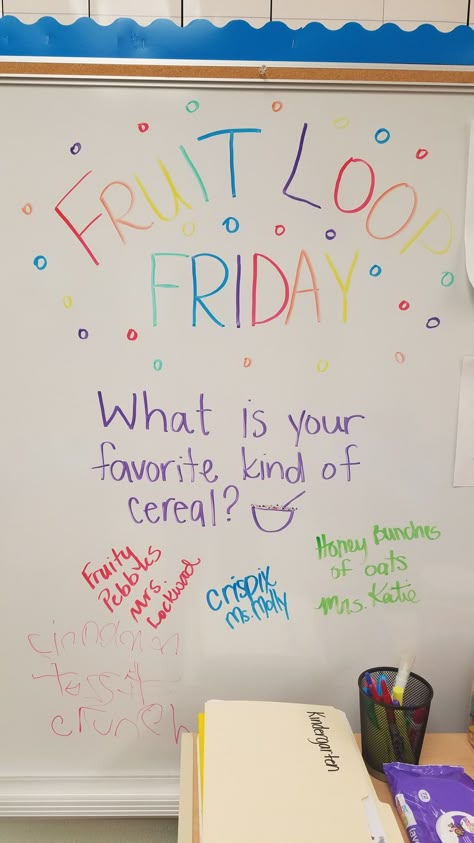 FRUIT LOOP
FRIDAY
What is your
favorite kind of
cereal?
Fruity
Pebbles
Mrs.
Lockwood
Crispix
Ms. Molly
Honey Bunches
of oats
Mrs. Katie
cinnamon
crunch
Kindergarten